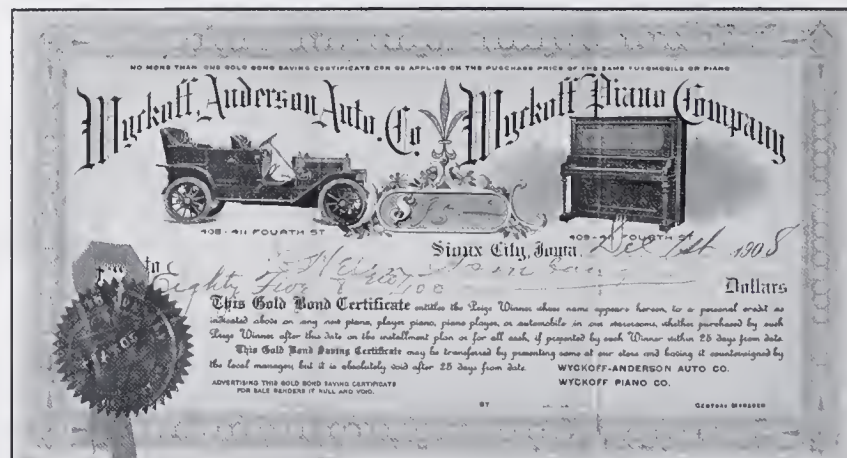 NO MORE THAN ONE GOLD BOND SAVING CERTIFICATE CAN BE APPLIED ON THE PURCHASE PRICE OF THE SAME AUTOMOBILE OR PIANO
Wyckoff Anderson Auto. Co
Wyckoff Piano Company
409-411 FOURTH ST
$ 85
409-411 FOURTH ST
Sioux City, Iowa, Dec 1st 1908
Eighty Five & no/100 Dollars
This Gold Bond Certificate entitles the Prize Winner whose name appears hereon, to a personal credit as
indicated above on any new piano, player piano, piano player, or automobile in our storerooms, whether purchased by such
Prize Winner after this date on the installment plan or for all cash, if presented by such Winner within 25 days from date.
This Gold Bond Saving Certificate may be transferred by presenting same at our store and having it countersigned by
the local manager, but it is absolutely void after 25 days from date.
WYCKOFF-ANDERSON AUTO CO.
WYCKOFF PIANO CO.
ADVERTISING THIS GOLD BOND SAVING CERTIFICATE
FOR SALE RENDERS IT NULL AND VOID.
BY
GENERAL MANAGER